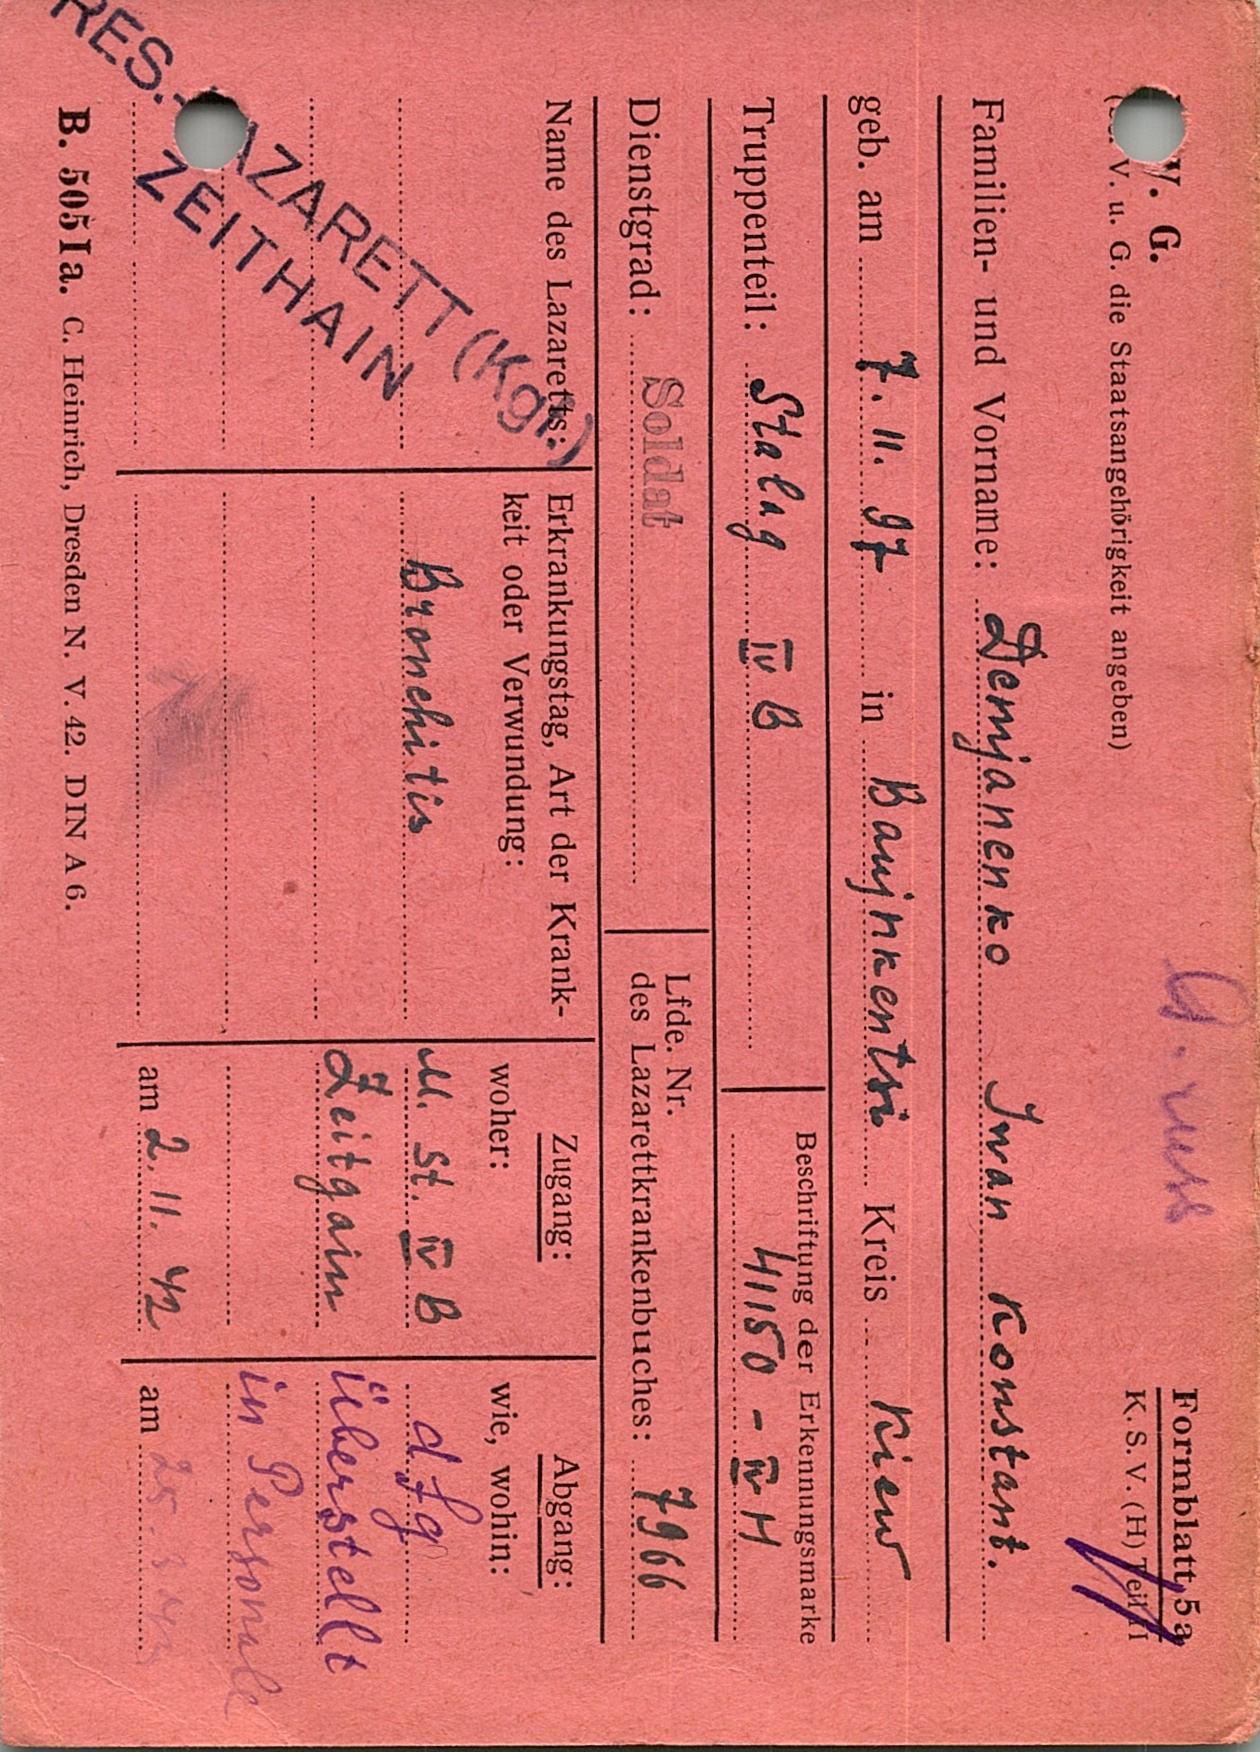 W. G.
G. russ
Formblatt 5a
K. S. V. (H) Teil II
V. u. G. die Staatsangehörigkeit angeben)
Familien- und Vorname: Demjanenko Iwan Konstant.
geb. am 7. 11. 97 in Baujnkentsi Kreis Kiew
Truppenteil: Stalag IV B
Beschriftung der Erkennungsmarke
41150 - IV H
Dienstgrad: Soldat
Lfde. Nr.
des Lazarettkrankenbuches: 7966
Name des Lazaretts:
RES.-LAZARETT (Kgf.)
ZEITHAIN
Erkrankungstag, Art der Krank-
keit oder Verwundung:
Bronchitis
Zugang:
woher:
M. St. IV B
Zeitgain
am 2. 11. 42
Abgang:
wie, wohin:
dfg
überstellt
in Personale
am 25. 3 43
B. 505 Ia. C. Heinrich, Dresden N. V. 42. DIN A 6.